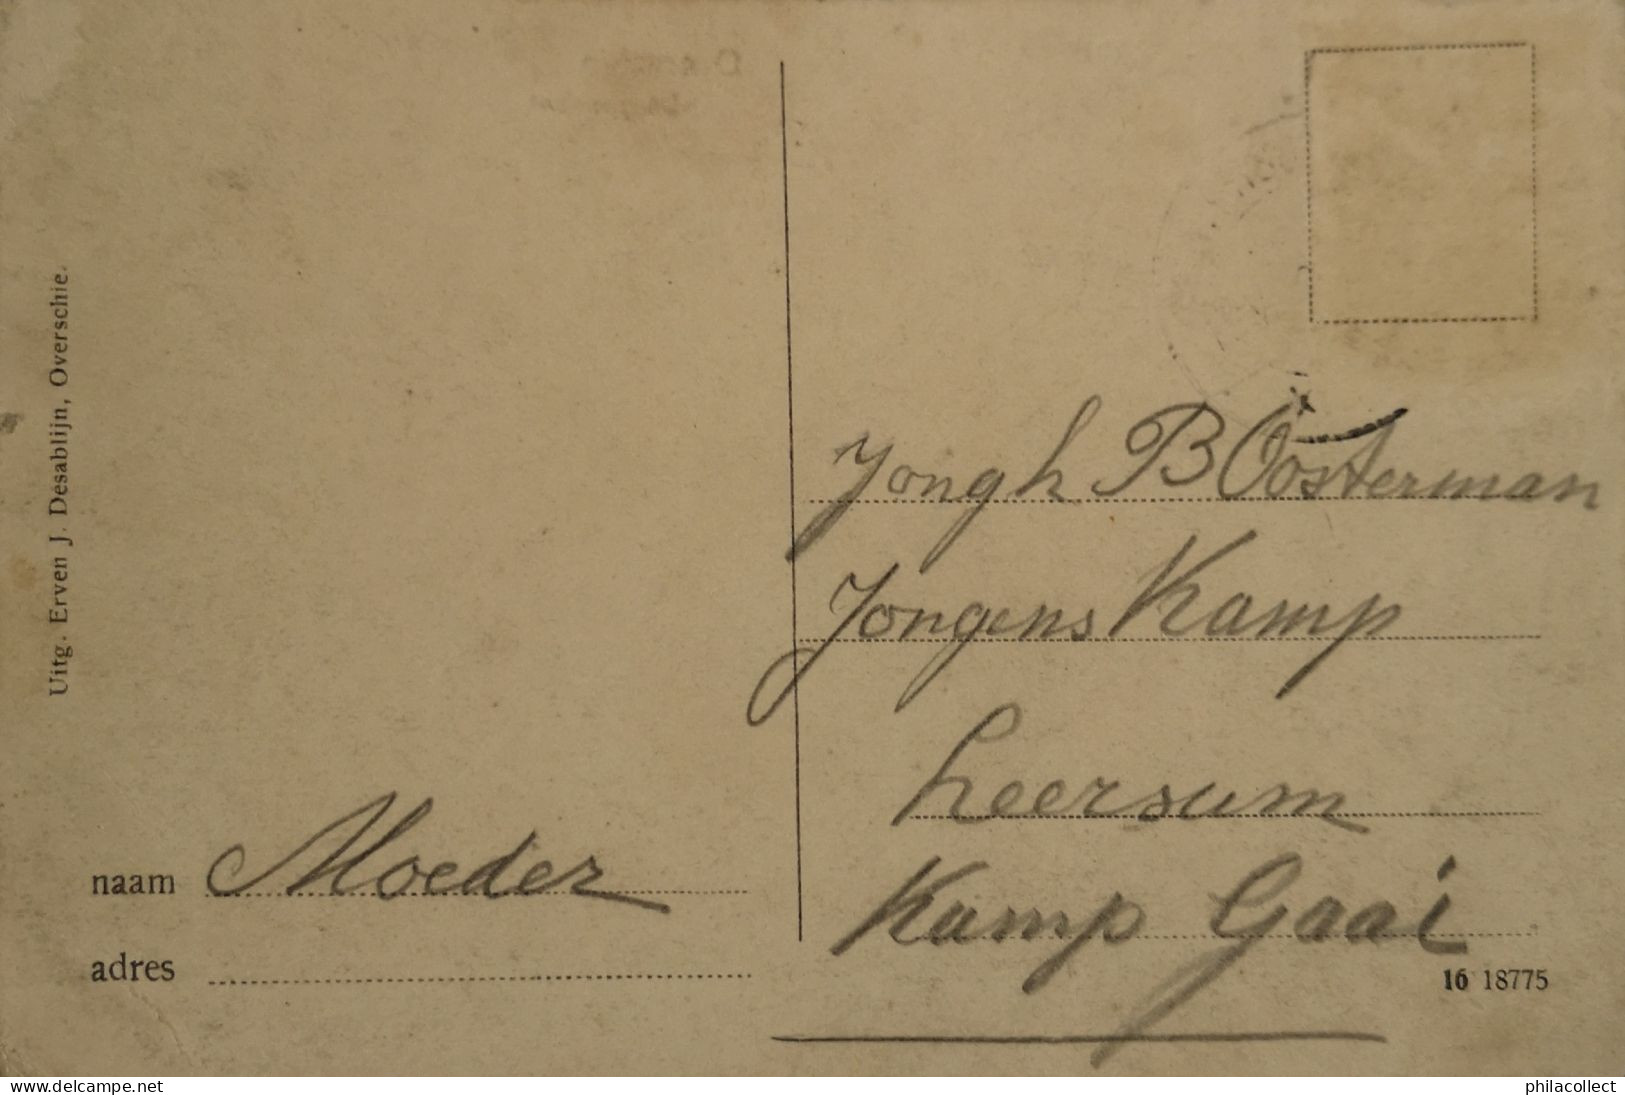 Uitg. Erven J. Desablijn, Overschie.
Jongh B Oosterman
Jongens Kamp
Leersum
Kamp Gaai
naam Moeder
adres
16 18775
website: delcampe.net
philacollect